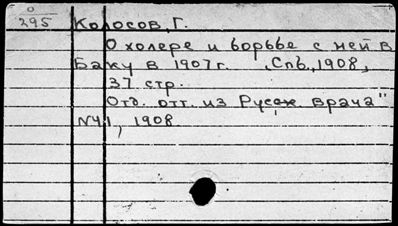 О
295 Колосов, Г.
О холере и борьбе с ней в
Баку в 1907 г. Спб., 1908,
37 стр.
Отд. отт. из Русск врача"
N41, 1908